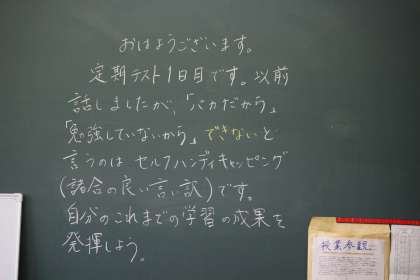 おはようございます。
定期テスト1日目です。以前
話しましたが、「バカだから」
「勉強していないから」できないと
言うのは セルフハンディキャッピング
(都合の良い言い訳)です。
自分のこれまでの学習の成果を
発揮しよう。
授業参観